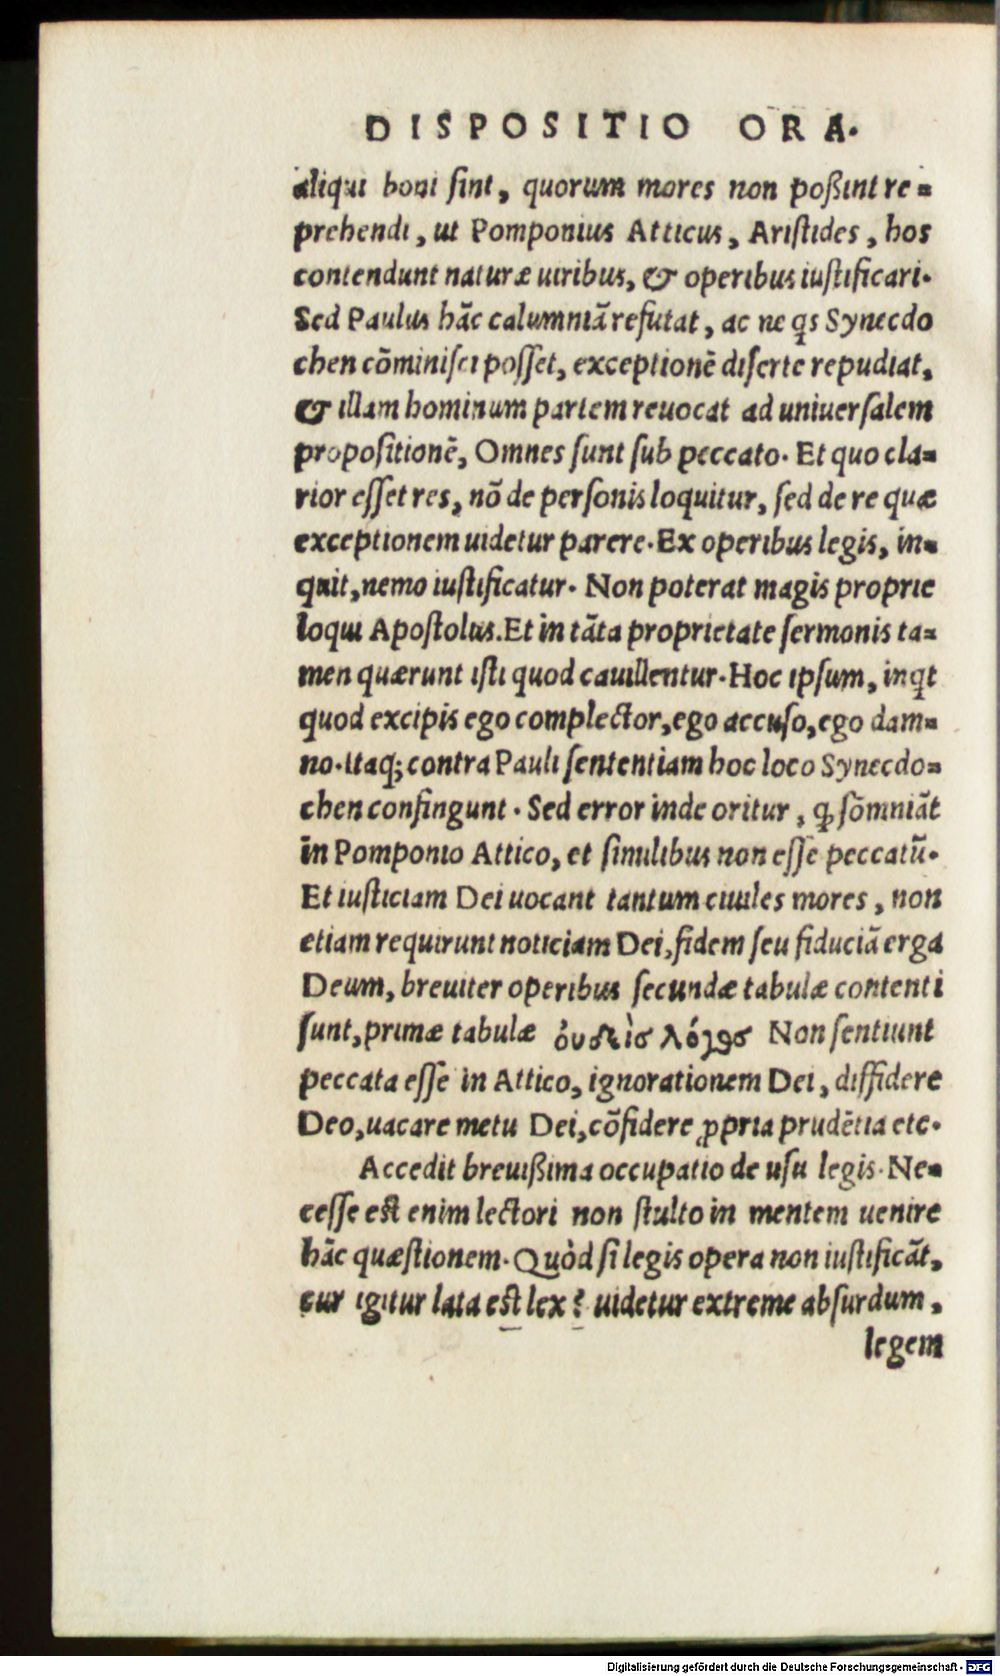 DISPOSITIO ORA.
aliqui boni ſint, quorum mores non poßint re=
prehendi, ut Pomponius Atticus, Ariſtides, hos
contendunt naturæ uiribus, & operibus iuſtificari.
Sed Paulus hãc calumniã refutat, ac ne qs Synecdo
chen cõminiſci poſſet, exceptionẽ diſerte repudiat,
& illam hominum partem reuocat ad uniuerſalem
propoſitionẽ, Omnes ſunt ſub peccato. Et quo cla=
rior eſſet res, nõ de perſonis loquitur, ſed de re quæ
exceptionem uidetur parere. Ex operibus legis, in=
quit, nemo iuſtificatur. Non poterat magis proprie
loqui Apoſtolus. Et in tãta proprietate ſermonis ta=
men quærunt iſti quod cauillentur. Hoc ipſum, inqt
quod excipis ego complector, ego accuſo, ego dam=
no. Itaq; contra Pauli ſententiam hoc loco Synecdo=
chen confingunt. Sed error inde oritur, ꝙ ſõmniãt
in Pomponio Attico, et ſimilibus non eſſe peccatũ.
Et iuſticiam Dei uocant tantum ciuiles mores, non
etiam requirunt noticiam Dei, fidem ſeu fiduciã erga
Deum, breuiter operibus ſecundæ tabulæ contenti
ſunt, primæ tabulæ ὀυδεὶσ λόγοσ Non ſentiunt
peccata eſſe in Attico, ignorationem Dei, diffidere
Deo, uacare metu Dei, cõfidere ꝓpria prudẽtia etc.
Accedit breuißima occupatio de uſu legis. Ne=
ceſſe eſt enim lectori non ſtulto in mentem uenire
hãc quæſtionem. Quòd ſi legis opera non iuſtificãt,
cur igitur lata eſt lex? uidetur extreme abſurdum,
legem
Digitalisierung gefördert durch die Deutsche Forschungsgemeinschaft - DFG